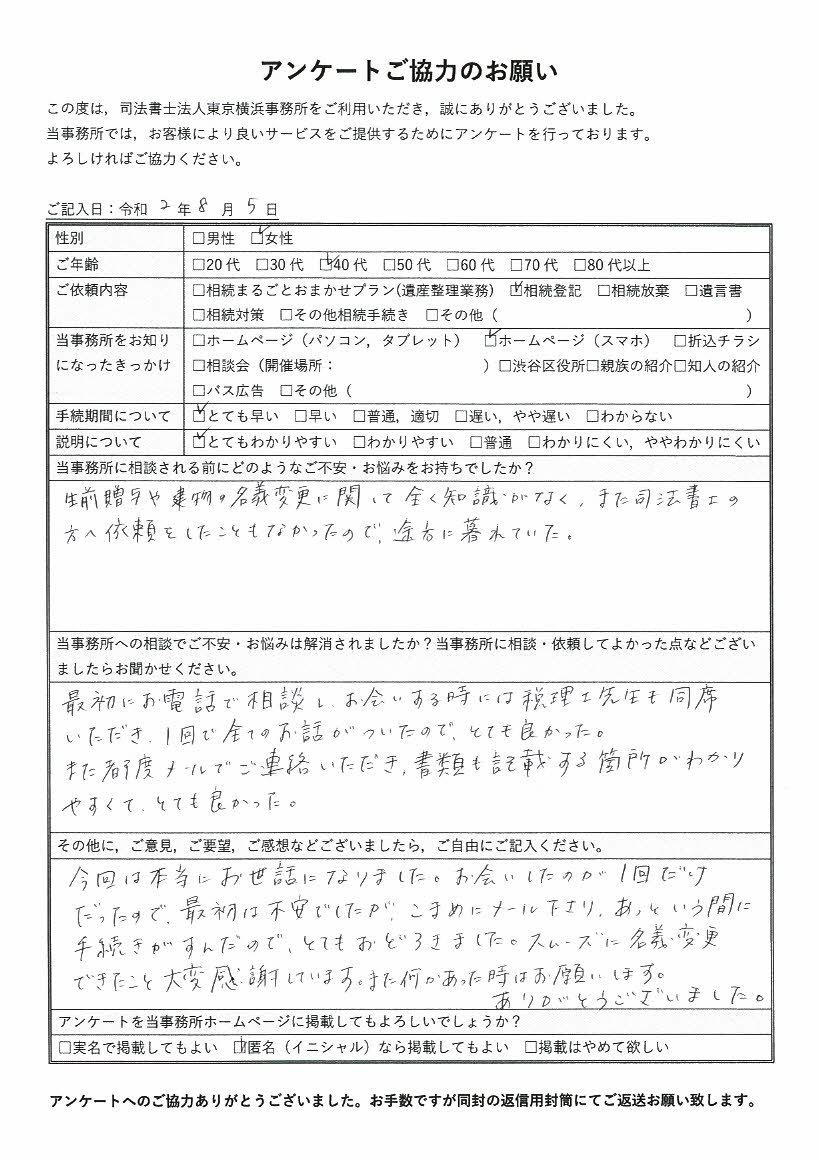 アンケートご協力のお願い
この度は，司法書士法人東京横浜事務所をご利用いただき，誠にありがとうございました。
当事務所では，お客様により良いサービスをご提供するためにアンケートを行っております。
よろしければご協力ください。
ご記入日：令和 2 年 8 月 5 日
性別 □男性 ☑女性
ご年齢 □20代 □30代 ☑40代 □50代 □60代 □70代 □80代以上
ご依頼内容 □相続まるごとおまかせプラン(遺産整理業務) ☑相続登記 □相続放棄 □遺言書
□相続対策 □その他相続手続き □その他（ ）
当事務所をお知り □ホームページ（パソコン，タブレット） ☑ホームページ（スマホ） □折込チラシ
になったきっかけ □相談会（開催場所： ）□渋谷区役所□親族の紹介□知人の紹介
□バス広告 □その他（ ）
手続期間について ☑とても早い □早い □普通，適切 □遅い，やや遅い □わからない
説明について ☑とてもわかりやすい □わかりやすい □普通 □わかりにくい，ややわかりにくい
当事務所に相談される前にどのようなご不安・お悩みをお持ちでしたか？
生前贈与や建物の名義変更に関して全く知識がなく、また司法書士の
方へ依頼をしたこともなかったので、途方に暮れていた。
当事務所への相談でご不安・お悩みは解消されましたか？当事務所に相談・依頼してよかった点などござい
ましたらお聞かせください。
最初にお電話で相談し、お会いする時には税理士先生も同席
いただき、1回で全てのお話がついたので、とても良かった。
また都度メールでご連絡いただき、書類も記載する箇所がわかり
やすくて、とても良かった。
その他に，ご意見，ご要望，ご感想などございましたら，ご自由にご記入ください。
今回は本当にお世話になりました。お会いしたのが1回だけ
だったので、最初は不安でしたが、こまめにメール下さり、あっという間に
手続きがすんだので、とてもおどろきました。スムーズに名義変更
できたこと大変感謝しています。また何かあった時はお願いします。
ありがとうございました。
アンケートを当事務所ホームページに掲載してもよろしいでしょうか？
□実名で掲載してもよい ☑匿名（イニシャル）なら掲載してもよい □掲載はやめて欲しい
アンケートへのご協力ありがとうございました。お手数ですが同封の返信用封筒にてご返送お願い致します。